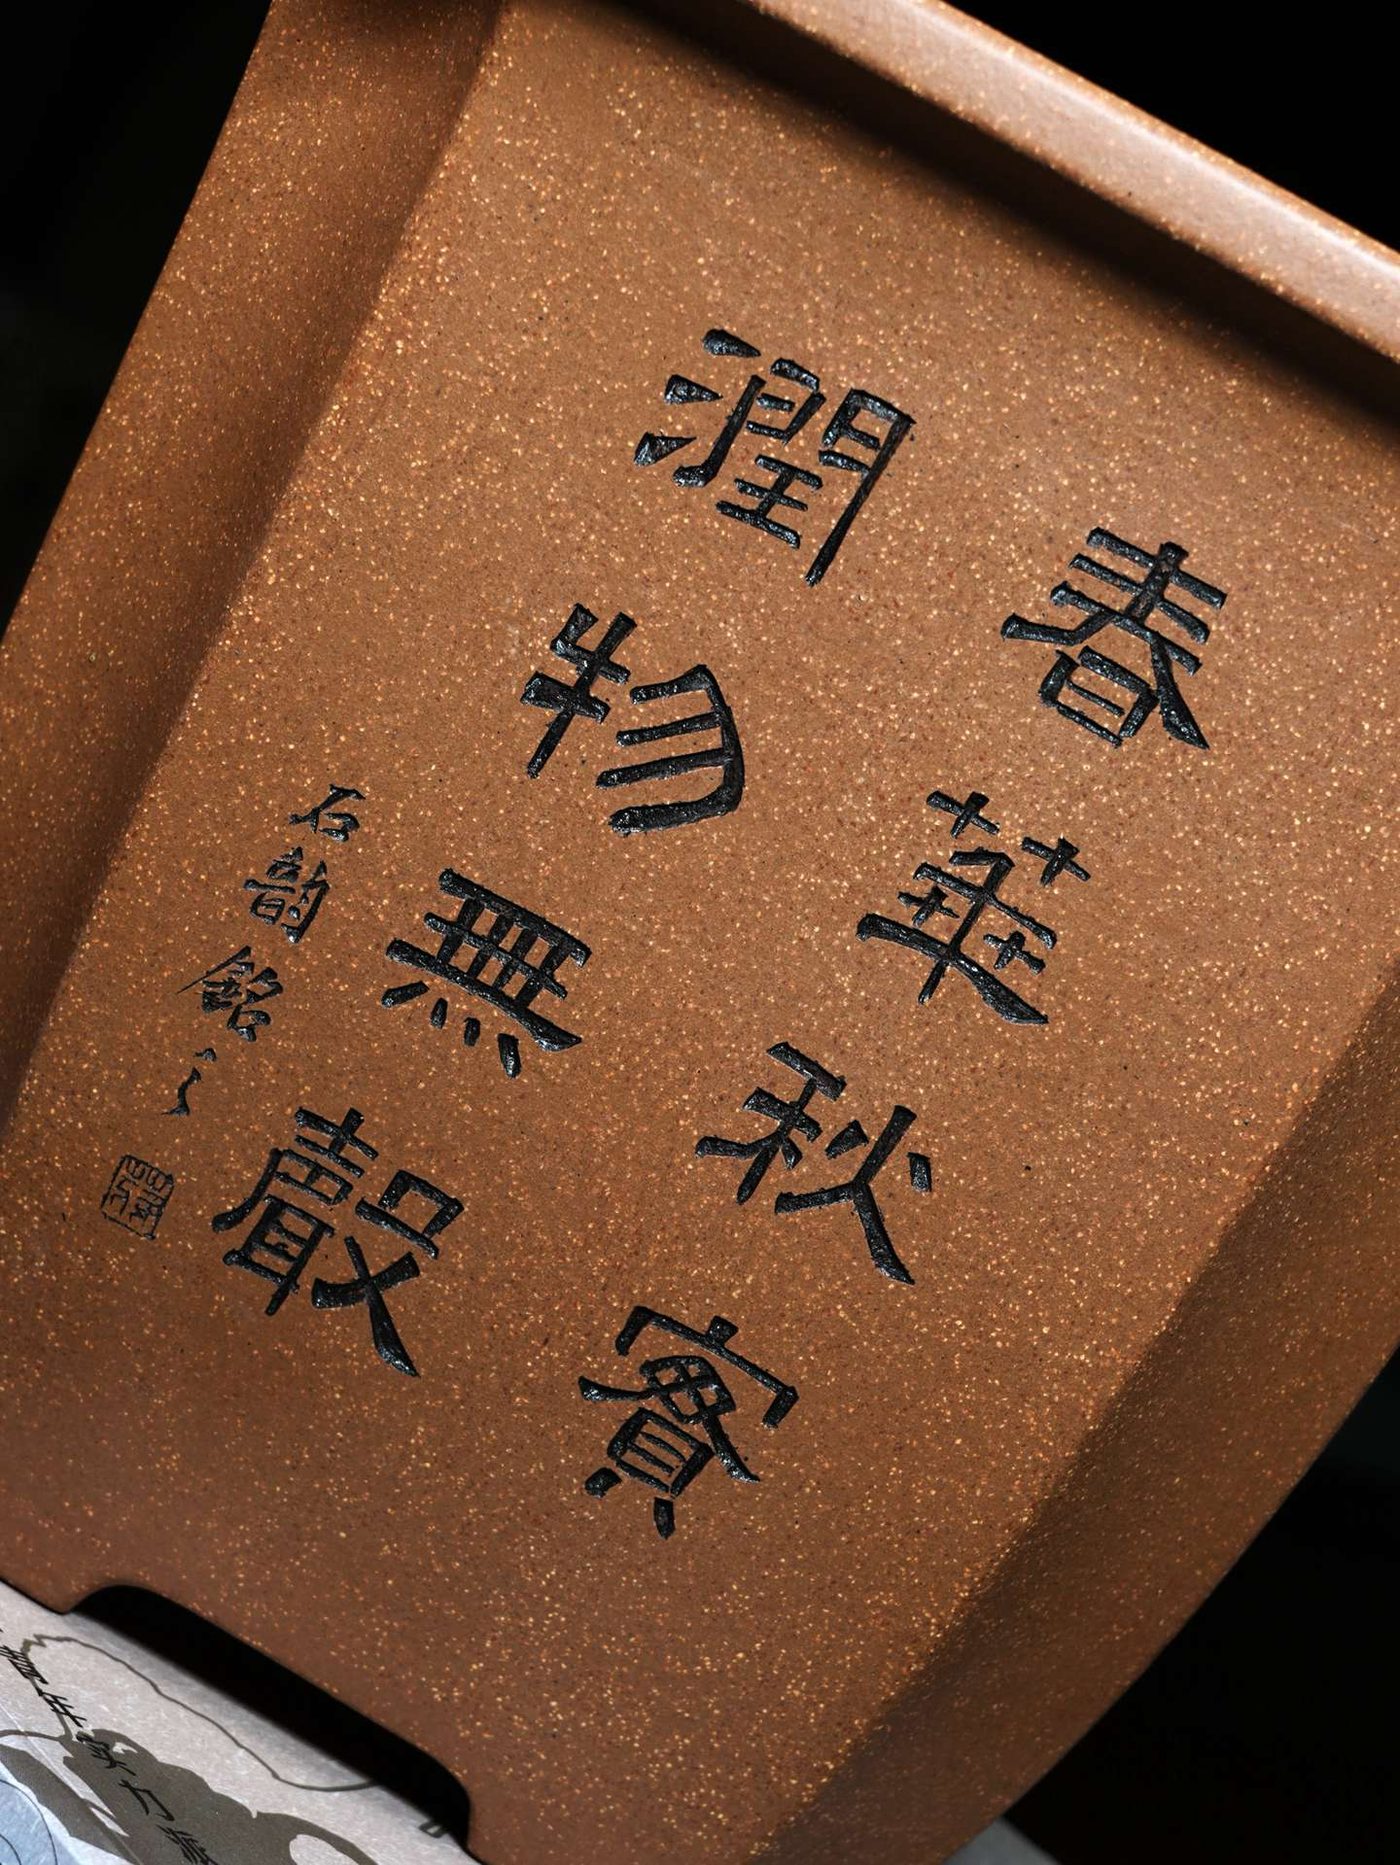 春華秋實
潤物無聲
石韵銘之